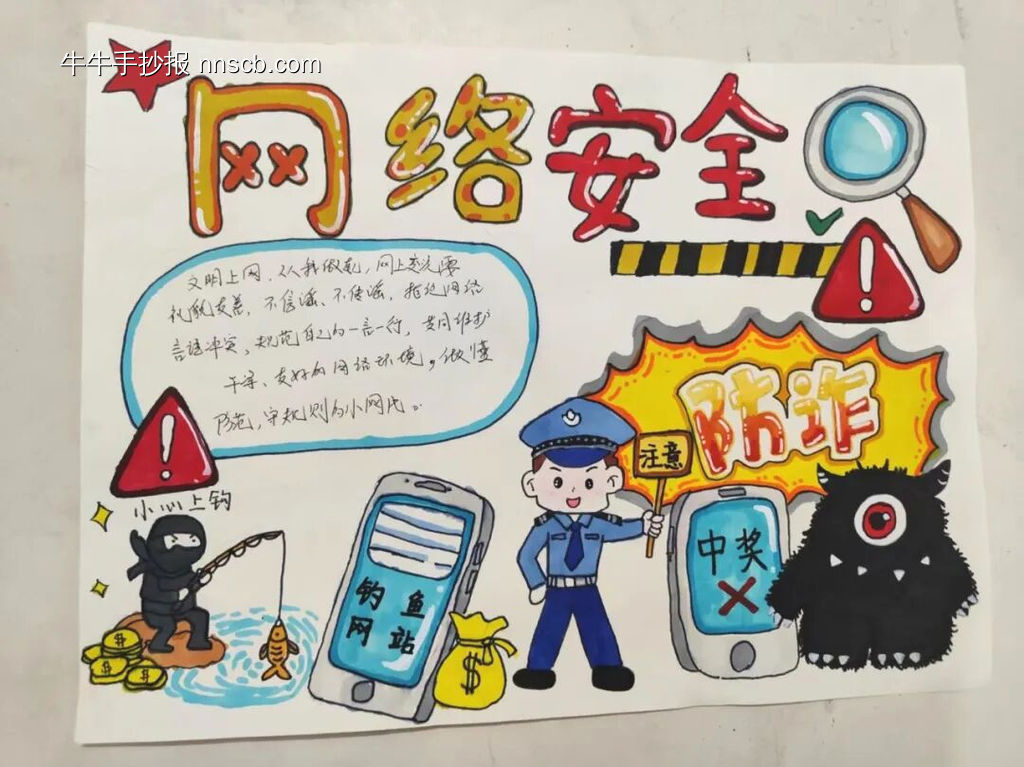 牛牛手抄报 nnscb.com
网络安全
文明上网，从我做起，网上交流要
礼貌友善，不信谣、不传谣，拒绝网络
言语冲突，规范自己的一言一行，共同维护
干净、友好的网络环境，做懂
防范，守规则的小网民。
防诈
注意
小心上钩
钓鱼
网站
中奖